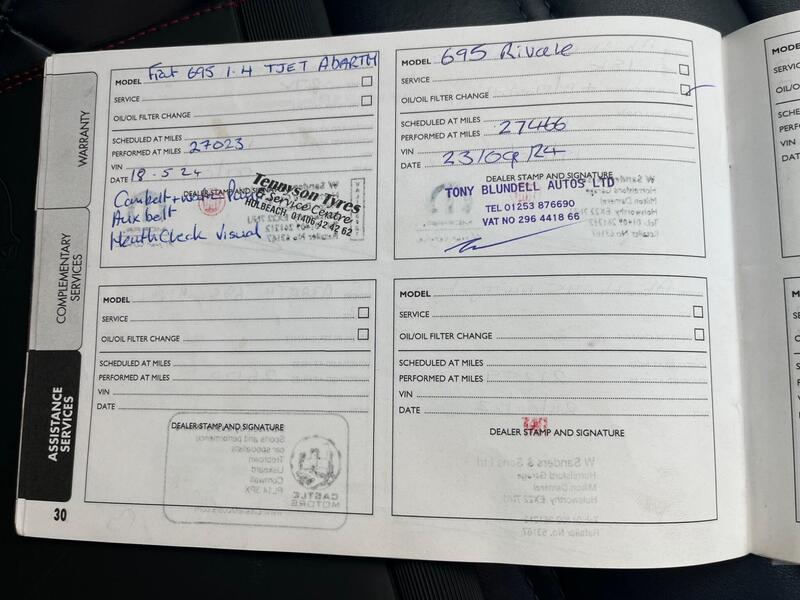 WARRANTY
COMPLEMENTARY
SERVICES
ASSISTANCE
SERVICES
30
MODEL Fiat 695 1.4 TJET ABARTH
SERVICE
OIL/OIL FILTER CHANGE
SCHEDULED AT MILES
PERFORMED AT MILES 27023
VIN
DATE 18.5.24
DEALER STAMP AND SIGNATURE
Cambelt + water Pump
Aux belt
Health Check Visual
Tennyson Tyres
& Service Centre
HOLBEACH 01406 42 42 62
MODEL 695 Rivale
SERVICE
OIL/OIL FILTER CHANGE
SCHEDULED AT MILES
PERFORMED AT MILES 27466
VIN
DATE 23/09/24
DEALER STAMP AND SIGNATURE
TONY BLUNDELL AUTOS LTD
TEL 01253 876690
VAT NO 296 4418 66
MODEL
SERVICE
OIL/OIL FILTER CHANGE
SCHEDULED AT MILES
PERFORMED AT MILES
VIN
DATE
DEALER STAMP AND SIGNATURE
MODEL
SERVICE
OIL/OIL FILTER CHANGE
SCHEDULED AT MILES
PERFORMED AT MILES
VIN
DATE
DEALER STAMP AND SIGNATURE
MODEL
SERVICE